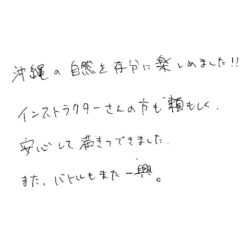 沖縄の自然を存分に楽しめました!!
インストラクターさんの方も頼もしく、
安心して着きつできました.
また、バトルもまた一興。